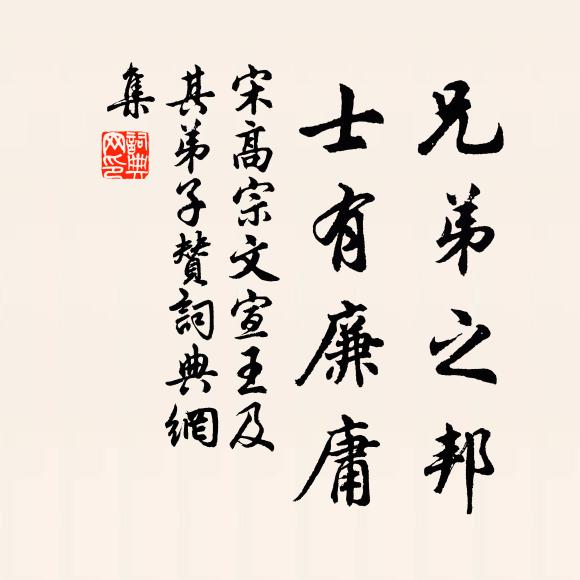 兄弟之邦
士有廉庸
宋高宗文宣王及
其弟子贊詞典網
集
詞典
网印